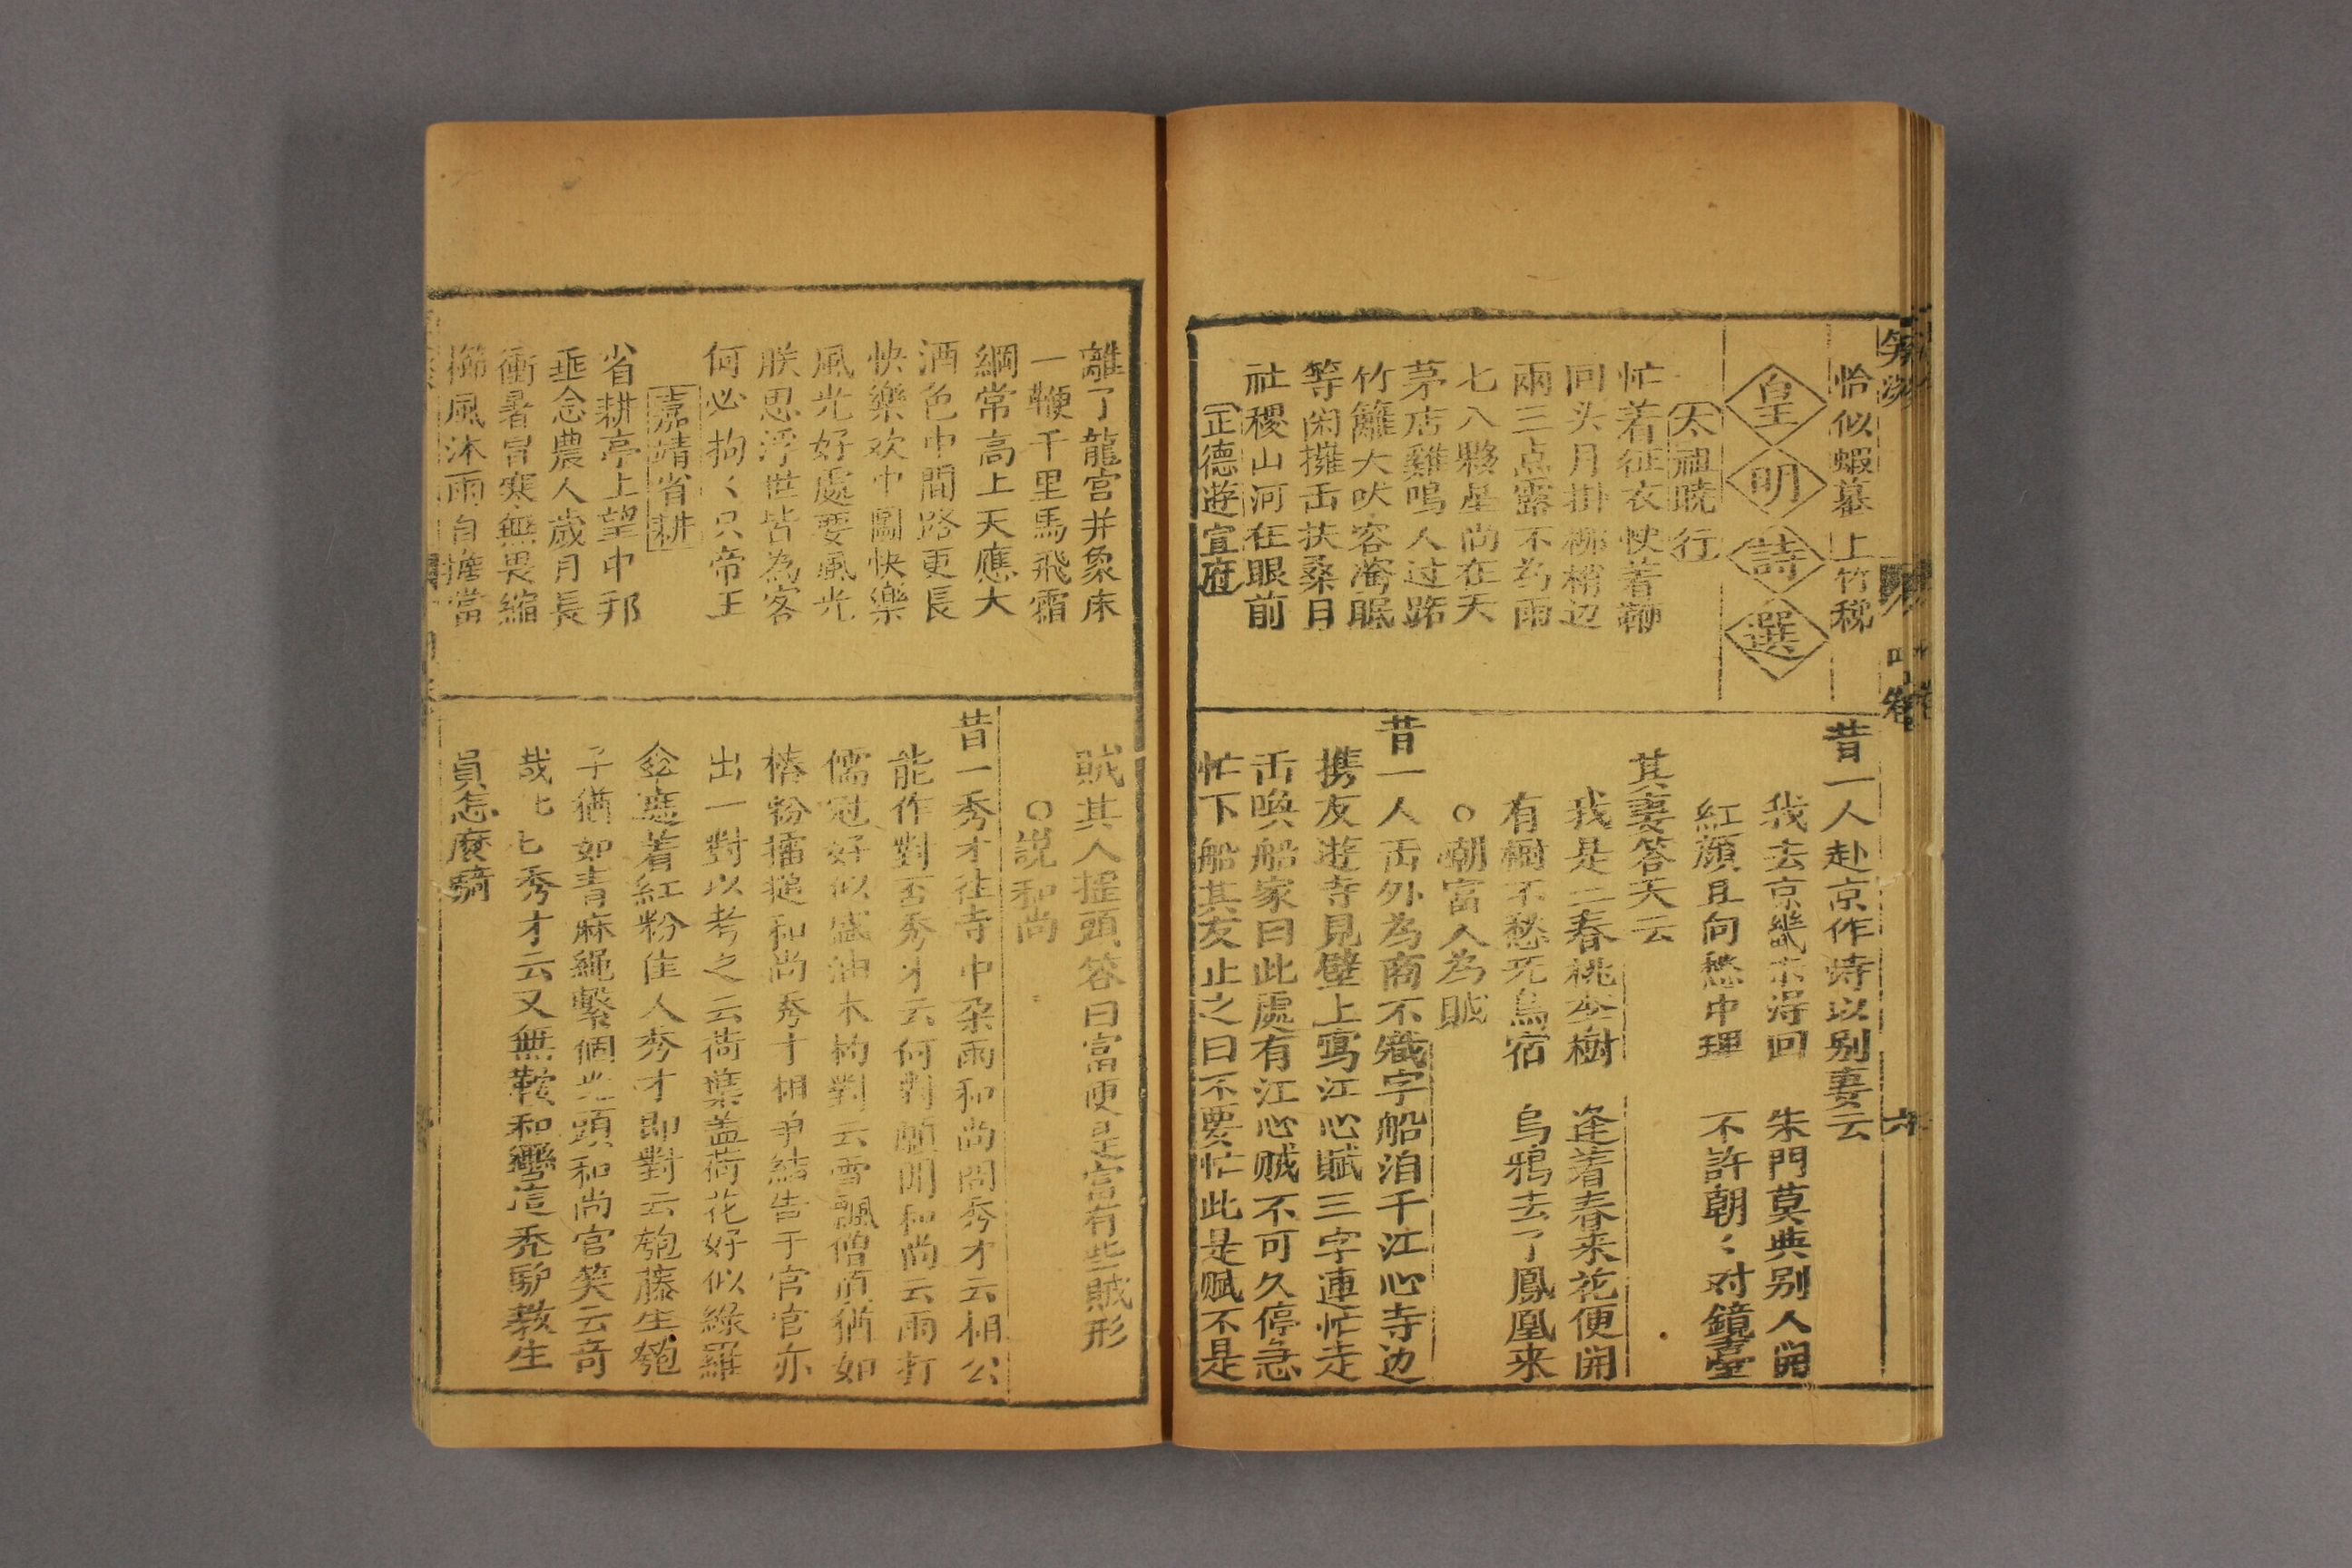 恰似蝦蟇上竹稍
皇明詩選
太祖曉行
忙着征衣快着鞭
囘头月掛柳梢边
兩三点露不为雨
七八夥星尚在天
茅店雞鳴人过路
竹籬犬吠客鸯眠
等闲擁出扶桑日
社稷山河在眼前
正德遊宣府
昔一人赴京作詩以别妻云
我去京畿未淂回　朱門莫與别人開
紅顔且向愁中理　不許朝〻对鏡臺
其妻答夫云
我是三春桃李樹　逢着春来花便開
有樹不愁无鳥宿　烏鴉去了鳳凰来
○嘲富人为賊
昔一人出外為商不識字船泊千江心寺边
携友遊寺見壁上寫江心賦三字連忙走
出喚船家曰此處有江心贼不可久停急
忙下船其友止之曰不要忙此是赋不是
離了龍宫并象床
一鞭千里馬飛霜
綱常高上天應大
酒色中間路更長
快樂欢中圖快樂
風光好處要風光
朕思浮世皆為客
何必拘〻只帝王
嘉靖省耕
省耕亭上望中邦
亟念農人歲月長
衝暑冒寒無畏縮
櫛風沐雨自擔當
賊其人摇頭答曰富便是富有些賊形
○説和尚
昔一秀才往寺中朶雨和尚問秀才云相公
能作對否秀才云何對願聞和尚云雨打
儒冠好似盛油木杓對云雪飄僧頂猶如
椿粉擂搥和尚秀才相爭結告于官官亦
出一對以考之云荷葉盖荷花好似綠羅
傘遮着紅粉佳人秀才即對云匏藤生匏
子猶如青麻繩繫個光頭和尚官笑云奇
哉 秀才云又無鞍和轡這禿驴教生
員怎麽騎